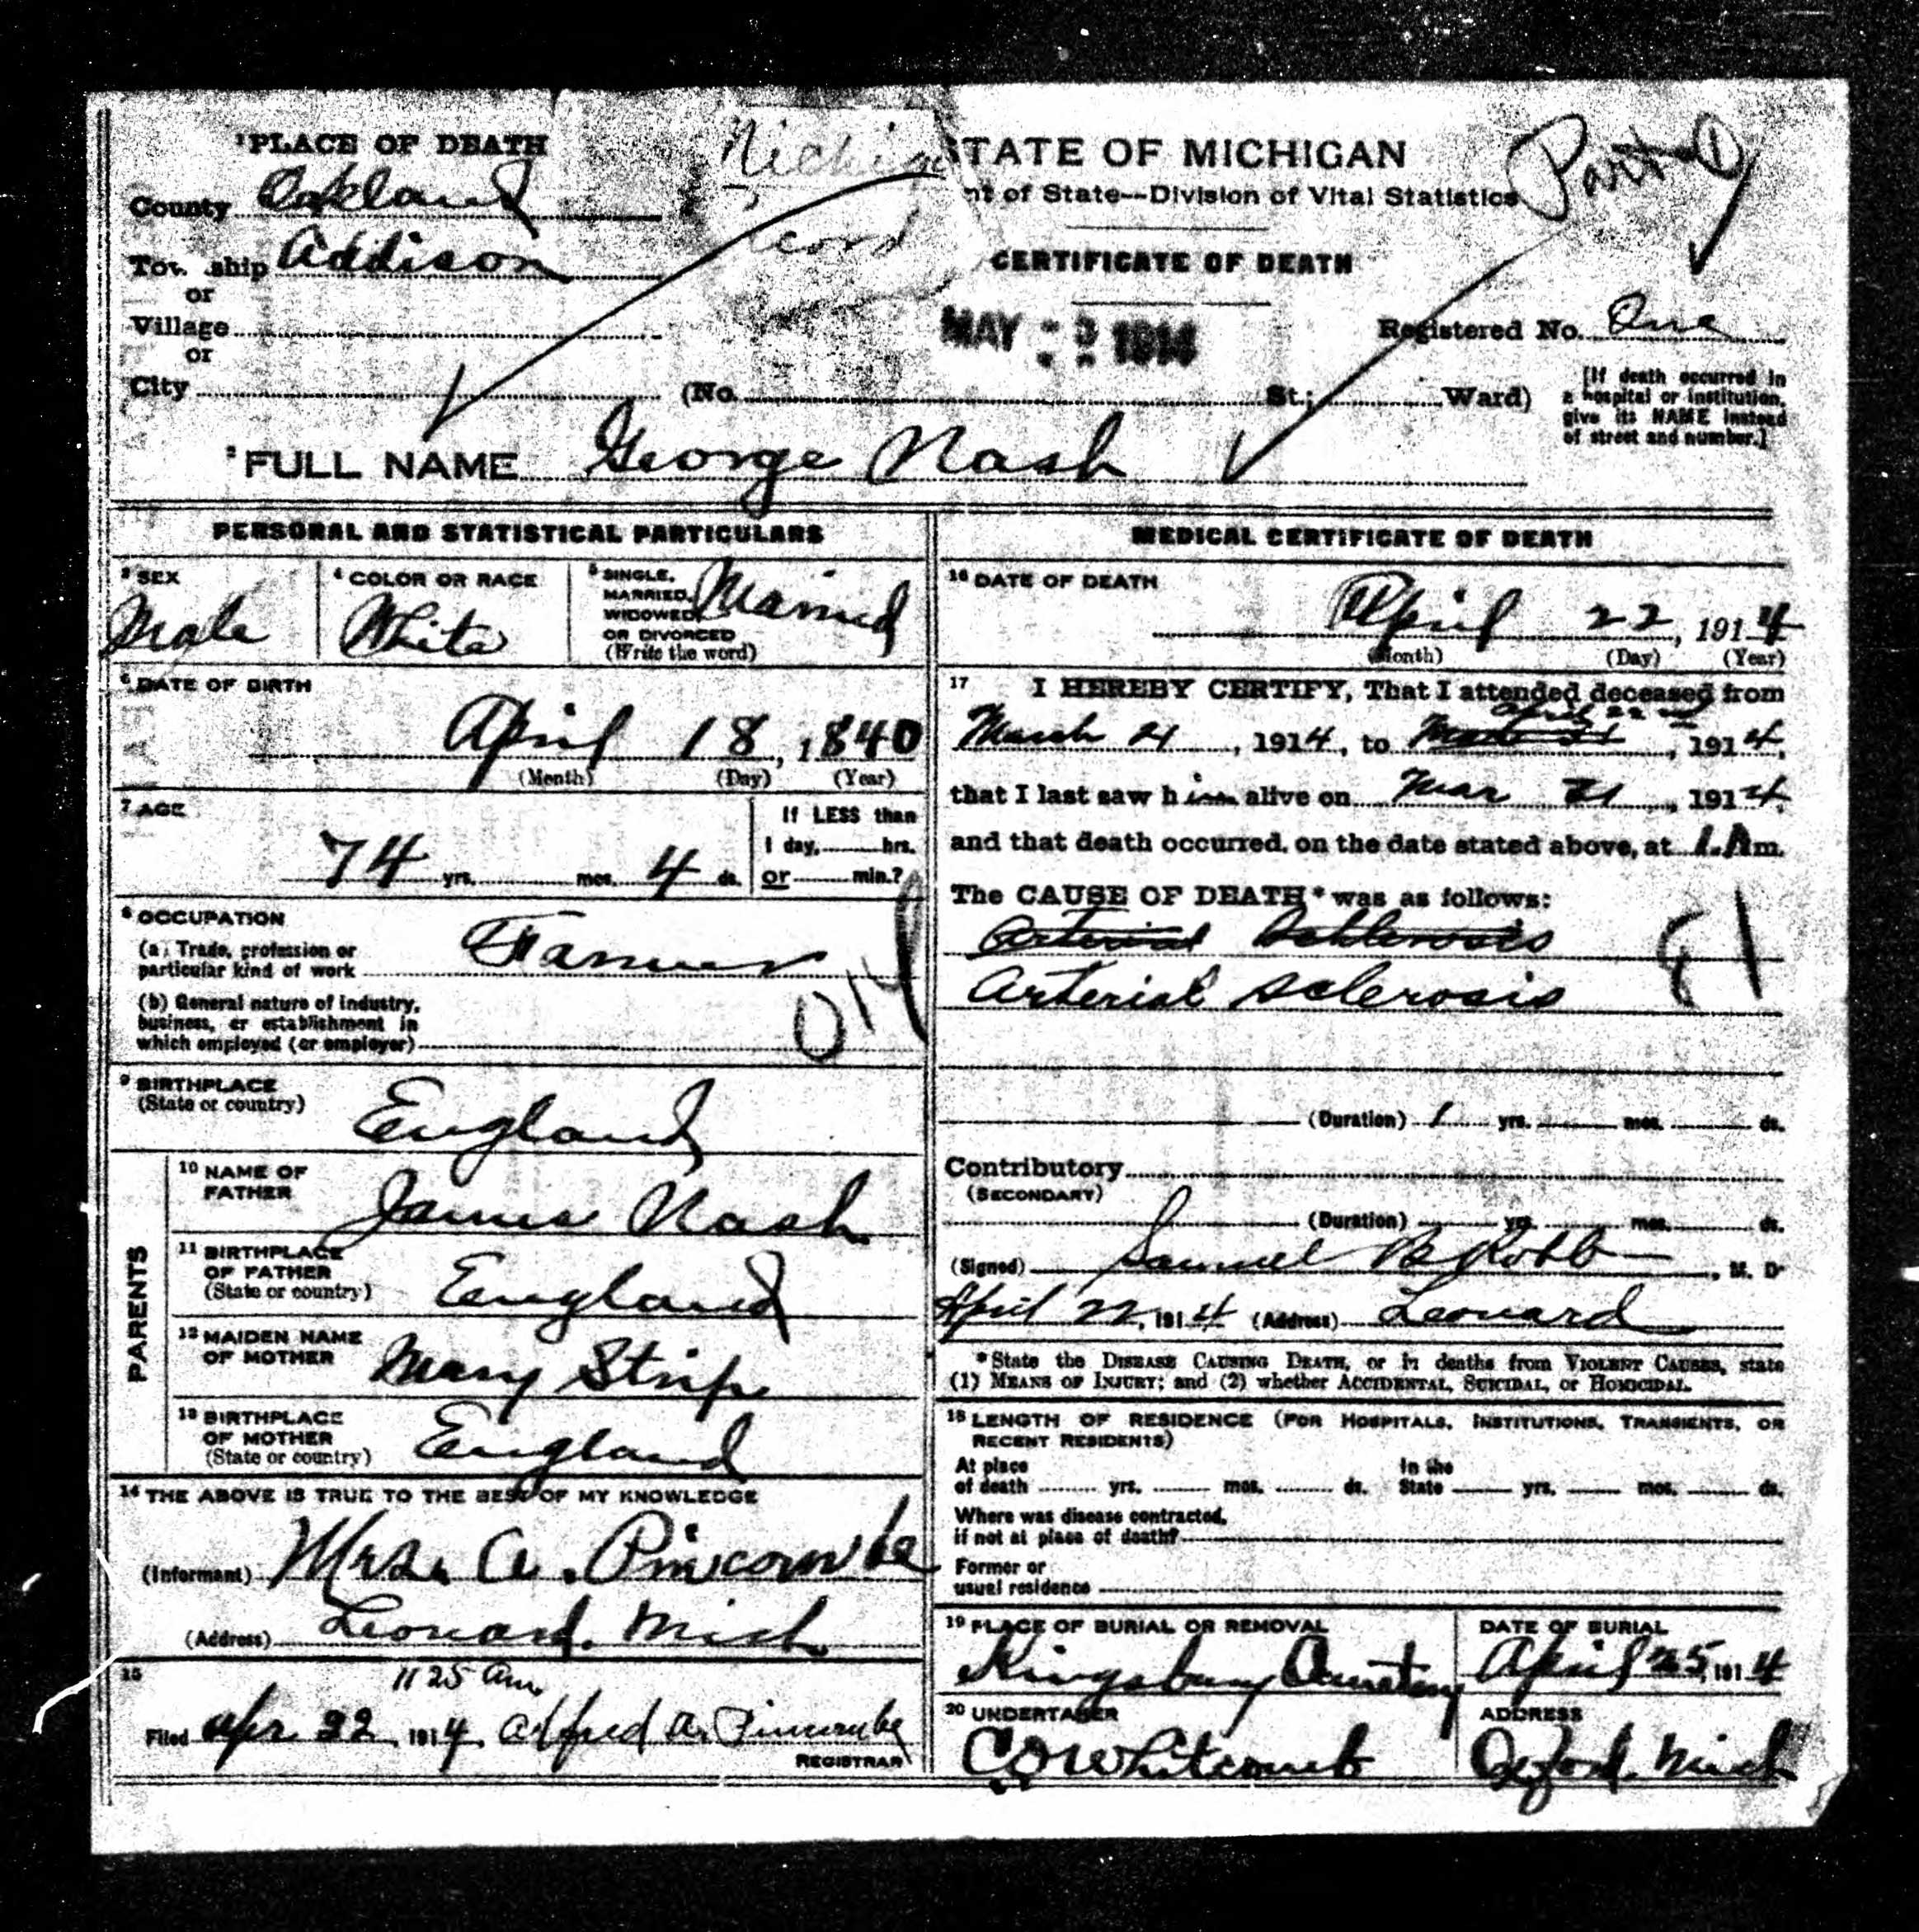 ¹PLACE OF DEATH
County Oakland
Township Addison
or
Village
or
City (No. St.; Ward)
STATE OF MICHIGAN
nt of State—Division of Vital Statistics
CERTIFICATE OF DEATH
MAY 1914
Part ①
Registered No. One
[If death occurred in
a hospital or institution,
give its NAME instead
of street and number.]
²FULL NAME George Nash
PERSONAL AND STATISTICAL PARTICULARS
³ SEX
Male
⁴ COLOR OR RACE
White
⁵ SINGLE,
MARRIED,
WIDOWED,
OR DIVORCED
(Write the word)
Married
⁶ DATE OF BIRTH
April 18, 1840
(Month) (Day) (Year)
⁷ AGE
74 yrs. mos. 4 ds.
If LESS than
1 day, hrs.
or min.?
⁸ OCCUPATION
(a) Trade, profession or
particular kind of work Farmer
(b) General nature of industry,
business, or establishment in
which employed (or employer)
⁹ BIRTHPLACE
(State or country)
England
PARENTS
¹⁰ NAME OF
FATHER
James Nash
¹¹ BIRTHPLACE
OF FATHER
(State or country)
England
¹² MAIDEN NAME
OF MOTHER
Mary Strip
¹³ BIRTHPLACE
OF MOTHER
(State or country)
England
¹⁴ THE ABOVE IS TRUE TO THE BEST OF MY KNOWLEDGE
(Informant) Mrs. A. Pincombe
(Address) Leonard. Mich
15
11 25 am
Filed Apr 22 1914. Alfred A. Pincombe
REGISTRAR
MEDICAL CERTIFICATE OF DEATH
¹⁶ DATE OF DEATH
April 22, 1914
(Month) (Day) (Year)
17 I HEREBY CERTIFY, That I attended deceased from
April 22
March 21, 1914, to , 1914,
that I last saw him alive on Mar 21, 1914
and that death occurred, on the date stated above, at 1.A m.
The CAUSE OF DEATH* was as follows:
Arterial
Arterial sclerosis
(Duration) 1 yrs. mos. ds.
Contributory
(SECONDARY)
(Duration) yrs. mos. ds.
(Signed) Samuel B Robb, M. D
April 22, 1914 (Address) Leonard
*State the DISEASE CAUSING DEATH, or in deaths from VIOLENT CAUSES, state
(1) MEANS OF INJURY; and (2) whether ACCIDENTAL, SUICIDAL, or HOMICIDAL.
¹⁸ LENGTH OF RESIDENCE (FOR HOSPITALS, INSTITUTIONS, TRANSIENTS, OR
RECENT RESIDENTS)
At place
of death yrs. mos. ds.
In the
State yrs. mos. ds.
Where was disease contracted,
if not at place of death?
Former or
usual residence
¹⁹ PLACE OF BURIAL OR REMOVAL
Kingsbury Cemetery
DATE OF BURIAL
April 25, 1914
²⁰ UNDERTAKER
C O Whitcomb
ADDRESS
Oxford. Mich